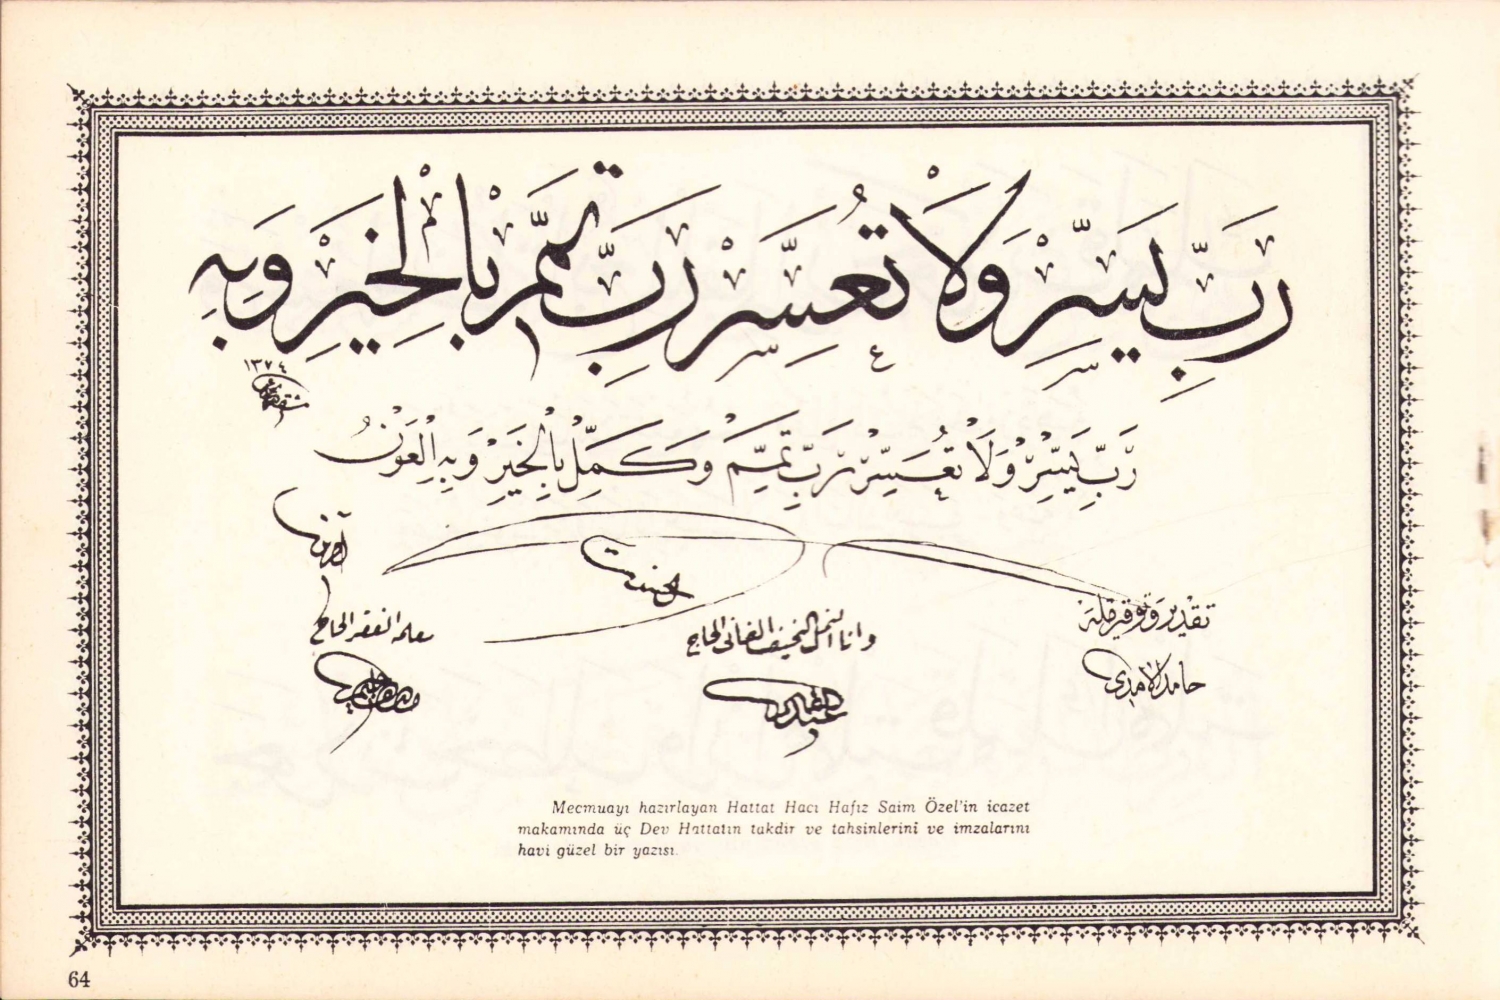 رَبِّ يَسِّرْ وَلَا تُعَسِّرْ رَبِّ تَمِّمْ بِالْخَيْرِ وَبِهِ
١٣٧٤
رَبِّ يَسِّرْ وَلَا تُعَسِّرْ رَبِّ تَمِّمْ وَكَمِّلْ بِالْخَيْرِ وَبِهِ الْعَوْنُ
آفرين
احسنت
تقدير و توقير قلمه
حامد الآمدى
وانا النحيف الفانى الحاج
معلمه الفقير الحاج
Mecmuayı hazırlayan Hattat Hacı Hafız Saim Özel'in icazet
makamında üç Dev Hattatın takdir ve tahsinlerini ve imzalarını
havi güzel bir yazısı.
64